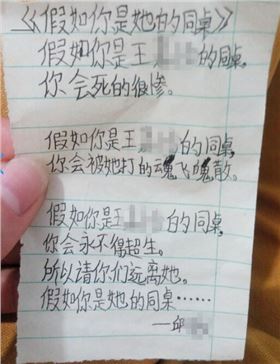 《假如你是她的同桌》
假如你是王的同桌,
你会死的很惨。
假如你是王的同桌
你会被她打的魂飞魄散。
假如你是王的同桌
你会永不得超生。
所以请你们远离她。
假如你是她的同桌……
——邱